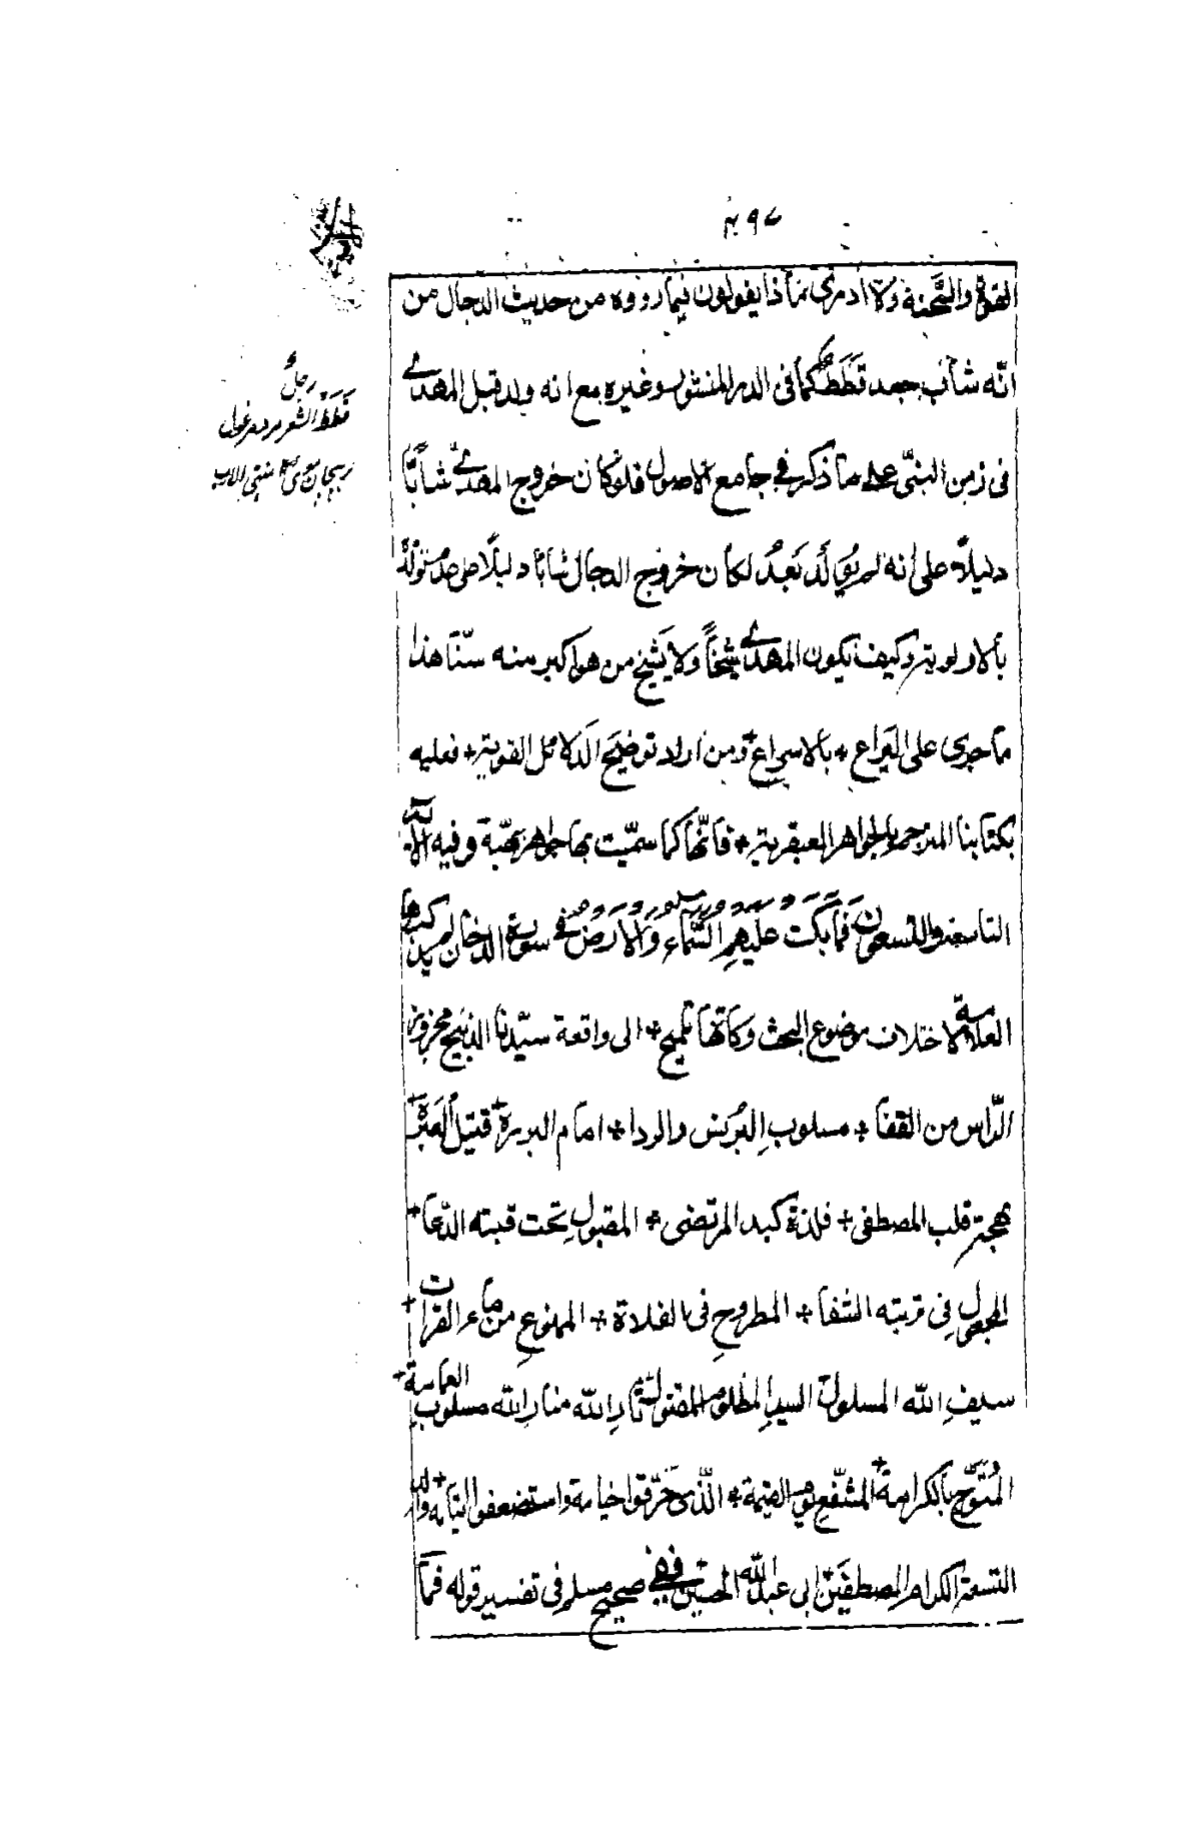 القوة والشحنة ولا ادرى ماذا يقولون فيما رووه من حديث الدجال من
انّه شاب جعد قَطَطٌ كما فى الدر المنثور وغيره مع انه ولد قبل المهدى
فى زمن النبىّ على ما ذكر فى جامع الاصول فلو كان خروج المهدى شابًّا
دليلاً على انه لم يولَد بَعدُ لكان خروج الدجال شابًا دليلًا على عدم تولّده
بالاولوية وكيف يكون المهدى شيخًا ولا يشيخ من هو اكبر منه سنّا هذا
ما جرى على اليراع + بالاسراع + ومن اراد توضيح الدلائل القوية + فعليه
بكتابنا المترجم بالجواهر العبقرية + فانّها كما سمّيت بها جواهر بهيّة وفيه الآية
التاسعة والتسعون فَمَا بَكَتْ عَلَيْهِمُ السَّمَاءُ وَالْاَرْضُ فى سورة الدخان لم يذكرها
العلامة لاختلاف موضوع البحث وكانّها تلميح + الى واقعة سيّدنا الذبيح مجزوز
الرّاس من القفا + مسلوب البُرنس والردا + امام البررة + قتيل العَبرة +
مهجة قلب المصطفى + فلذة كبد المرتضى + المقبولِ تحت قبته الدّعا +
المجعولِ فى تربته الشفا + المطروحِ فى الفلاة + الممنوعِ من ماء الفرات +
سيفِ الله المسلول السيد المظلوم المقتول ثارِ الله منارِ الله مسلوب العمامة +
المُتوَّج بالكرامة + المشفّع يوم القيمة + الّذى حَرّقوا خيامه واستضعفوا ايتامه + والد
التسعة الكرام المصطفَين ابى عبد الله الحسين ففى صحيح مسلم فى تفسير قوله فما
رجلٌ
قَطَط الشعر مرد مرغول